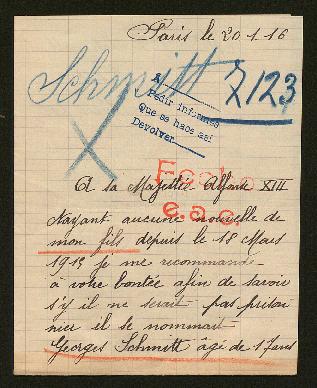 Paris le 20-1-16
Schmitt 2123
A
Pedir informes
Que se hace así
Devolver
Fecho
e.a.c.
A sa Majestée Alfonse XIII
N'ayant aucune nouvelle de
mon fils depuis le 18 Mars
je me recommande
à votre bontée afin de savoir
s'y il ne serait pas prison
nier il se nommait
Georges Schmitt âgé de ans